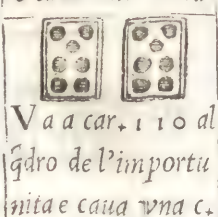 Va a car. 110 al
q̃dro de l'importu
nita e caua vna c.